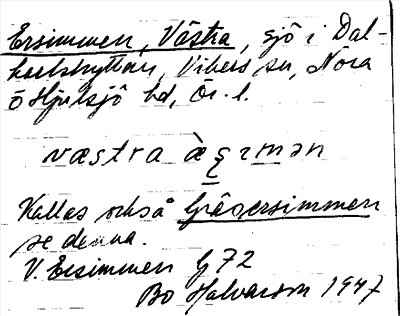 Ersimmen, Västra, sjö i Dal-
karlshyttan, Vikers sn, Nora
o Hjulsjö bd, Ör. l.
væstra
Kallas också Gråsersimmen
se denna.
V. Ersimmen G 72
Bo Halvarson 1947